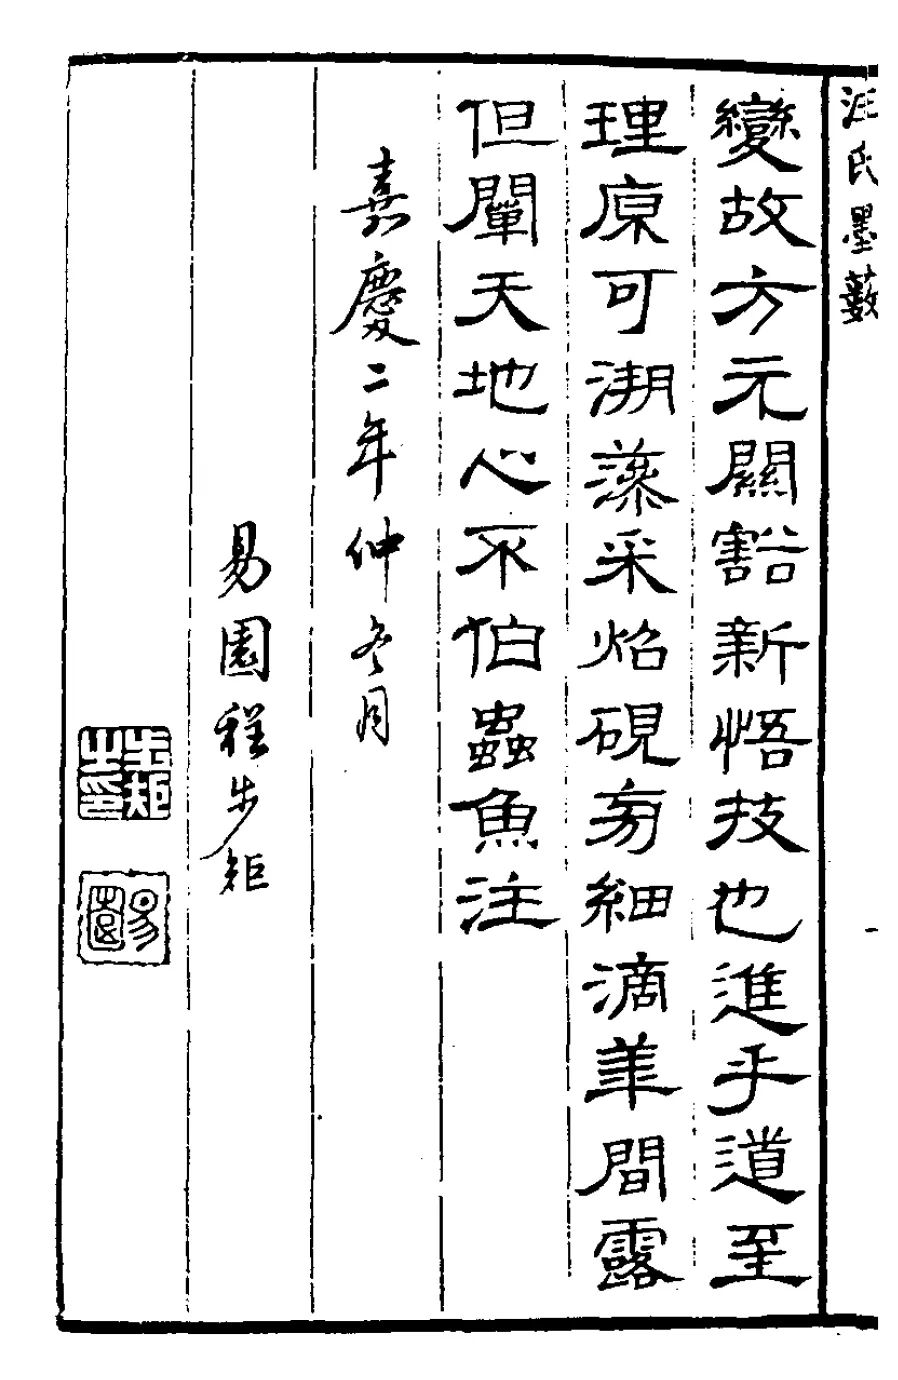 汪氏墨藪
變故方元關豁新悟技也進乎道至
理原可溯藻采焰硯旁細滴筆間露
但闡天地心不伯蟲魚注
嘉慶二年仲冬月
易園程步矩
步矩之印
易園